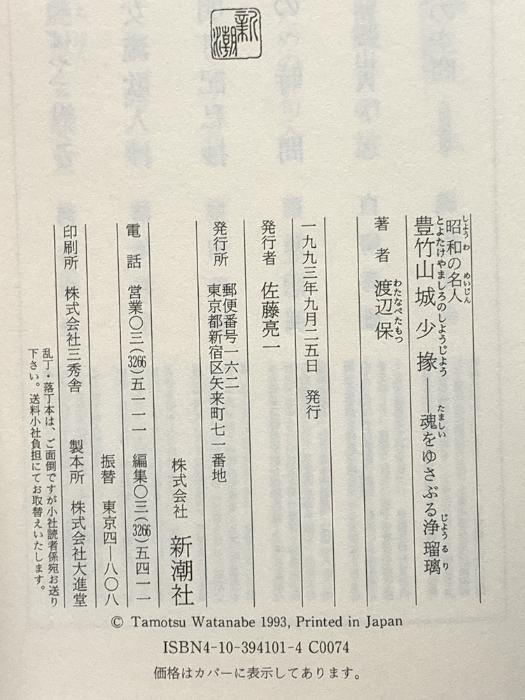 新潮
しょうわ めいじん
昭和の名人
とよたけやましろのしようじよう
豊竹山城少掾――魂をゆさぶる浄瑠璃
たましい じようるり
著者 渡辺保
わたなべたもつ
一九九三年九月二五日 発行
発行者 佐藤亮一
発行所 郵便番号一六二
東京都新宿区矢来町七一番地
株式会社 新潮社
電話 営業〇三(3266)五一一一 編集〇三(3266)五四一一
振替 東京四―八〇八
印刷所 株式会社三秀舎 製本所 株式会社大進堂
乱丁・落丁本は、ご面倒ですが小社読者係宛お送り
下さい。送料小社負担にてお取替えいたします。
© Tamotsu Watanabe 1993, Printed in Japan
ISBN4-10-394101-4 C0074
価格はカバーに表示してあります。